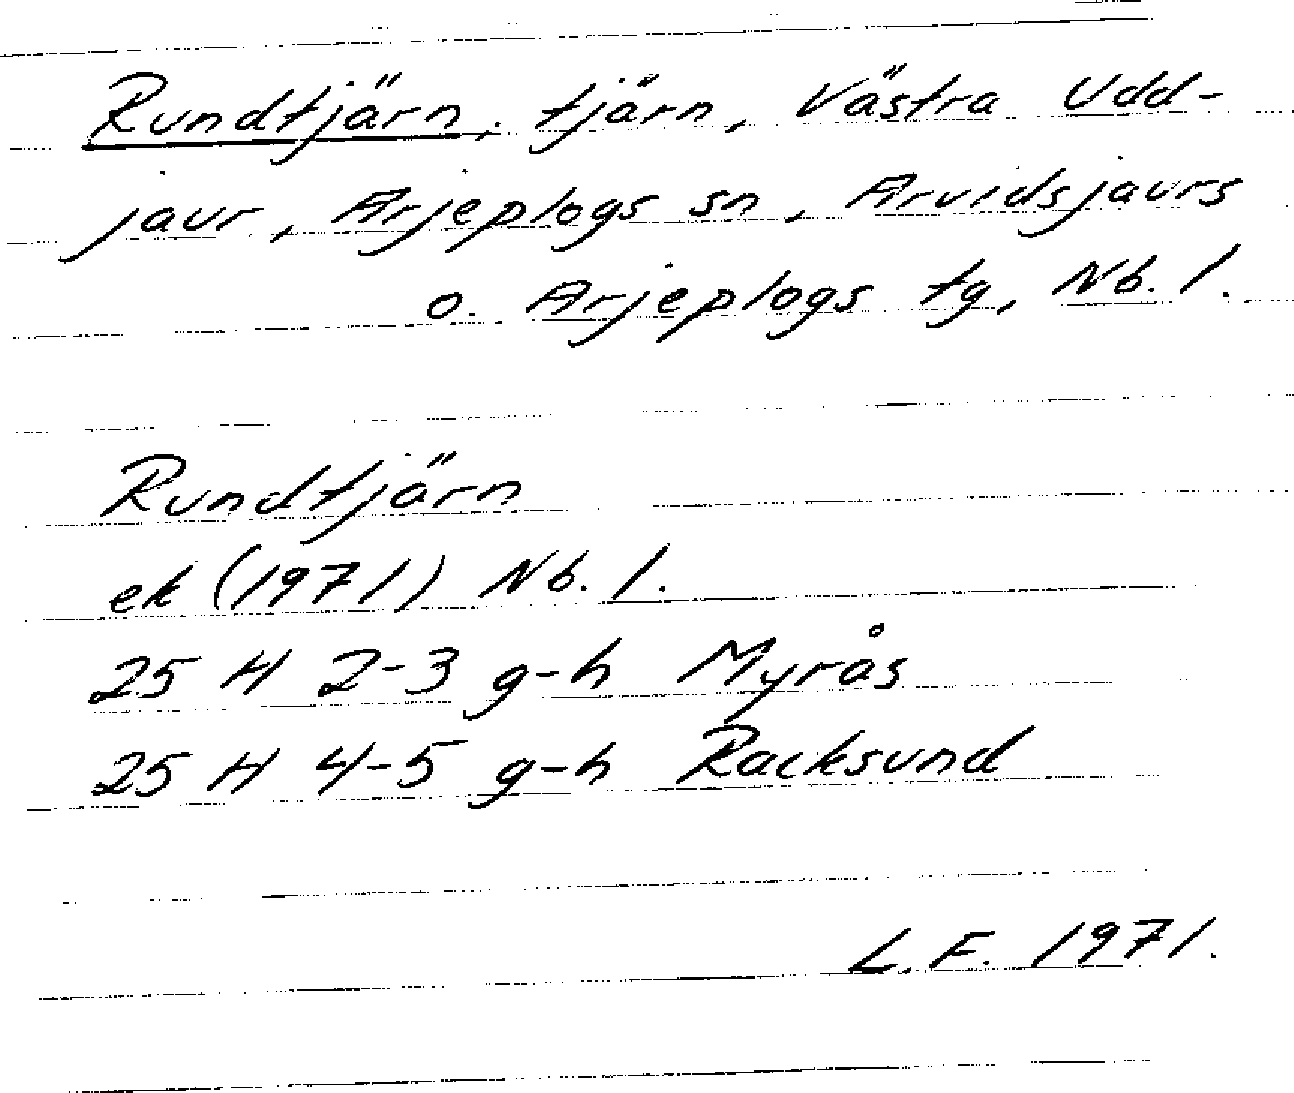 Rundtjärn, tjärn, Västra Udd-
jaur, Arjeplogs sn, Arvidsjaurs
o. Arjeplogs tg, Nb. l.
Rundtjärn
ek (1971) Nb. l.
25 H 2-3 g-h Myrås
25 H 4-5 g-h Racksund
L.F. 1971.